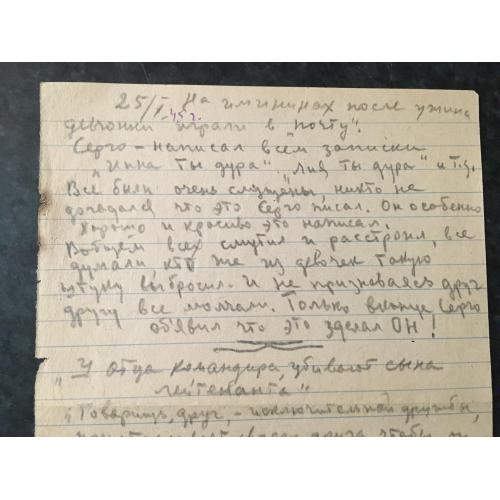 25/I-45г. На именинах после ужина
девчонки играли в „почту".
Серго – написал всем записки
„Инна ты дура" „Лия ты дура" и т.д.
Все были очень смущены никто не
догадался что это Серго писал. Он особенно
хорошо и красиво это написал.
Вобщем всех смутил и расстроил, все
думали, кто же из девочек такую
штуку выбросил. И не признаваясь друг
другу все молчали. Только вконце Серго
об'явил что это зделал ОН!
„У Отца командира, убивают сына
лейтенанта"
„Товарищ, друг, – исключительной дружбы,
друга чтобы